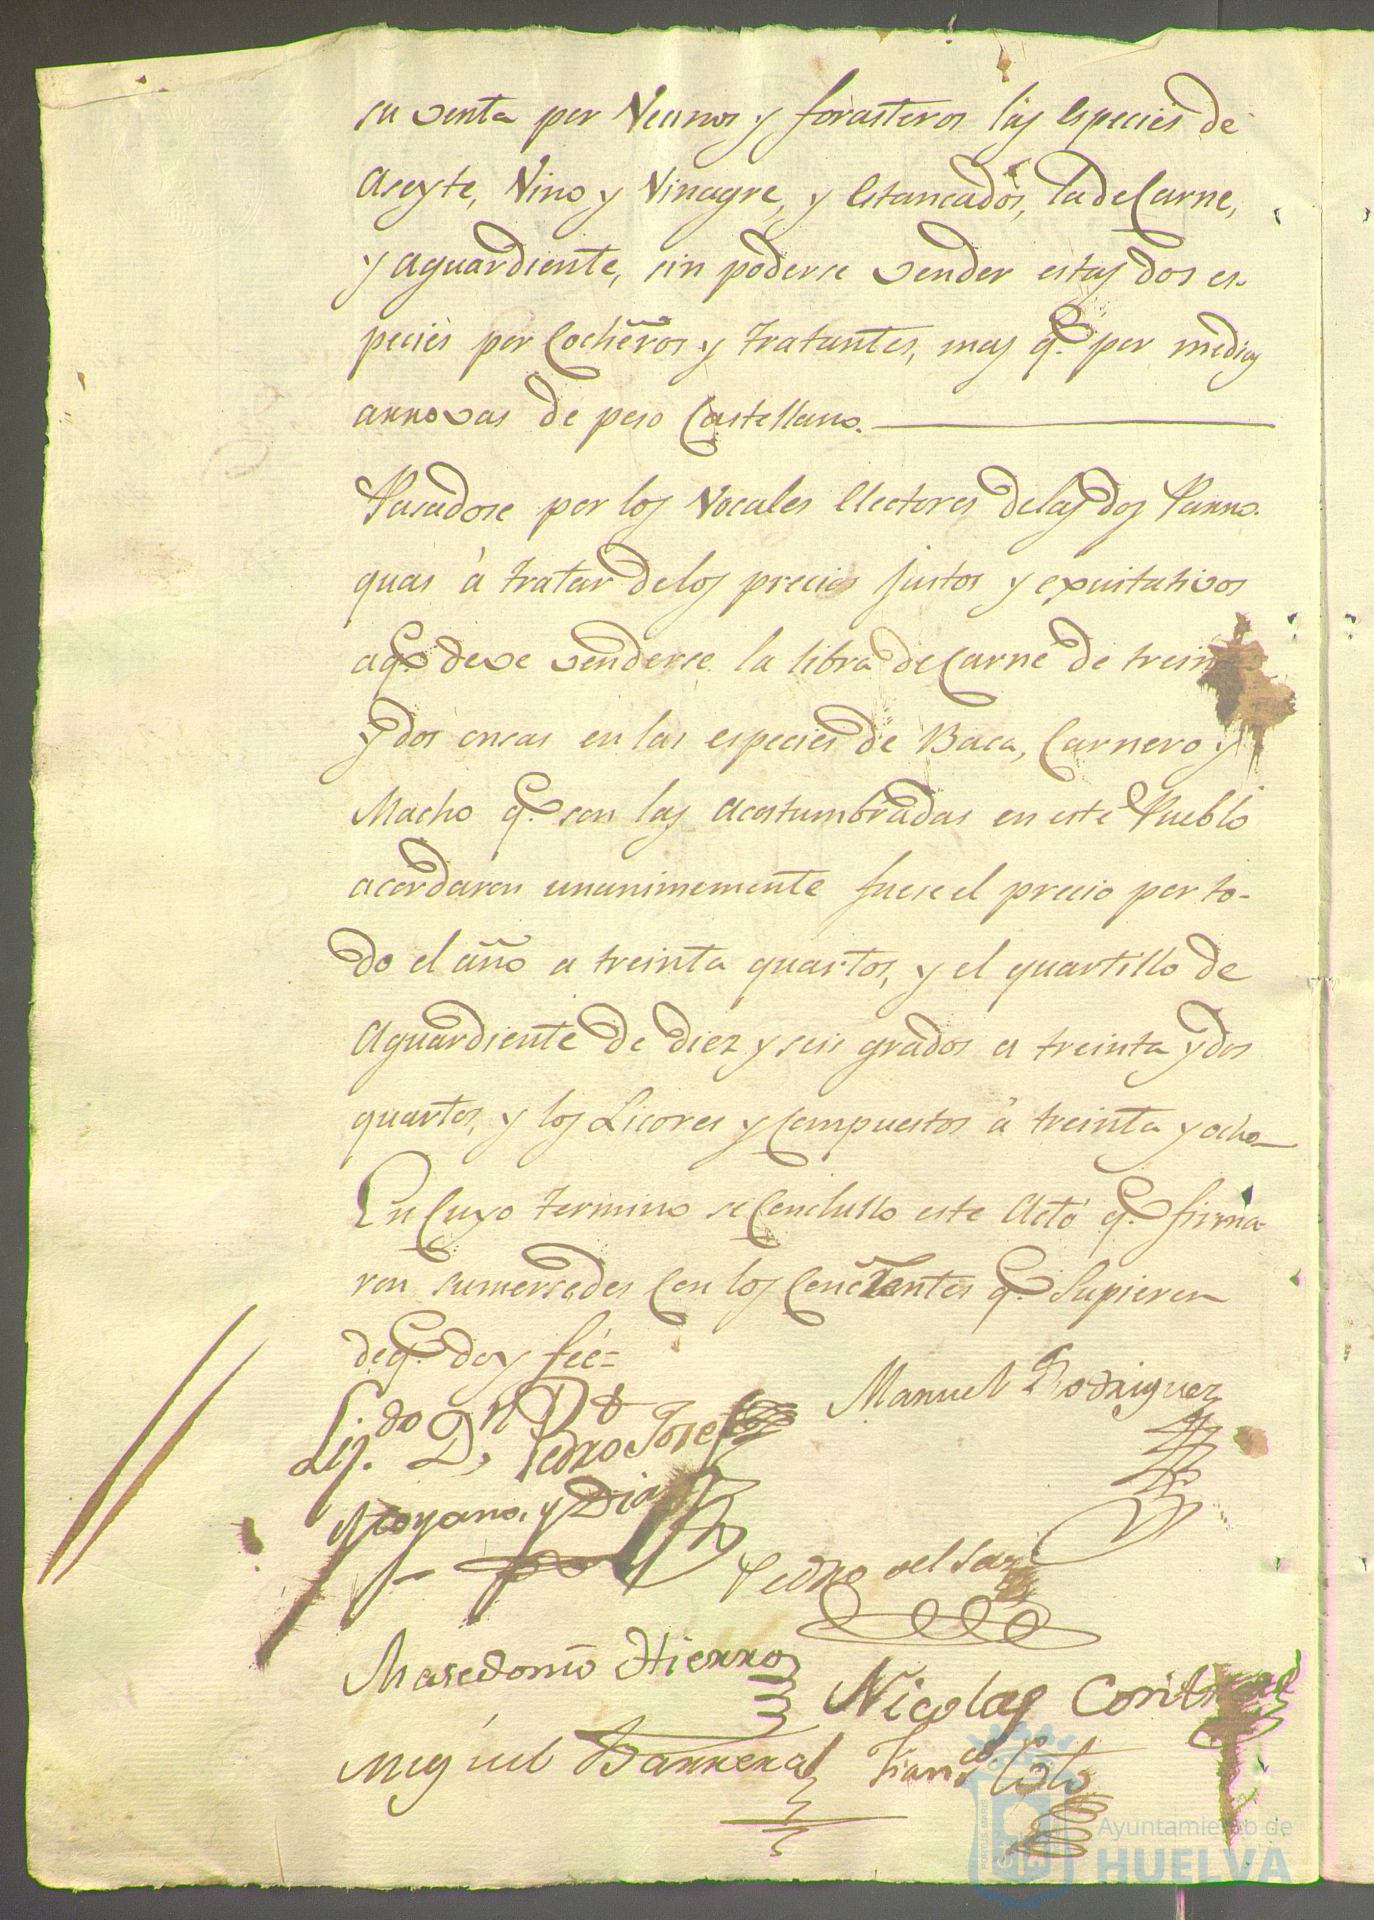 su venta por Vecinos y forasteros las especies de
Aseyte, Vino y Vinagre, y Estancados, la de Carne,
y aguardiente, sin poderse vender estas dos es-
pecies por Cocheros y tratantes, mas q.e por medias
arrovas de peso Castellano.
Pasadose por los Vocales Electores de las dos Parro-
quas à tratar de los precios justos y equitativos
aq.e deve venderse la libra de Carne de treinta
y dos onsas en las especies de Baca, Carnero y
Macho q.e son las acostumbradas en este Pueblo
acordaron unanimemente fuese el precio por to-
do el año a treinta quartos, y el quartillo de
Aguardiente de diez y seis grados a treinta y dos
quartos, y los Licores y Compuestos à treinta y ocho
En Cuyo termino se Conclullo este Acto q.e firma-
ron sumersedes Con los q.e Supieron
de q.e doy feé=
Liz.do D.n Pedro Jose Manuel Rodriguez
Moyano, y Dias
Pedro del Saz
Masedonio Hierro
Nicolas Contreras
Miguel Barreral Fran.co Coto
Ayuntamiento de
HUELVA